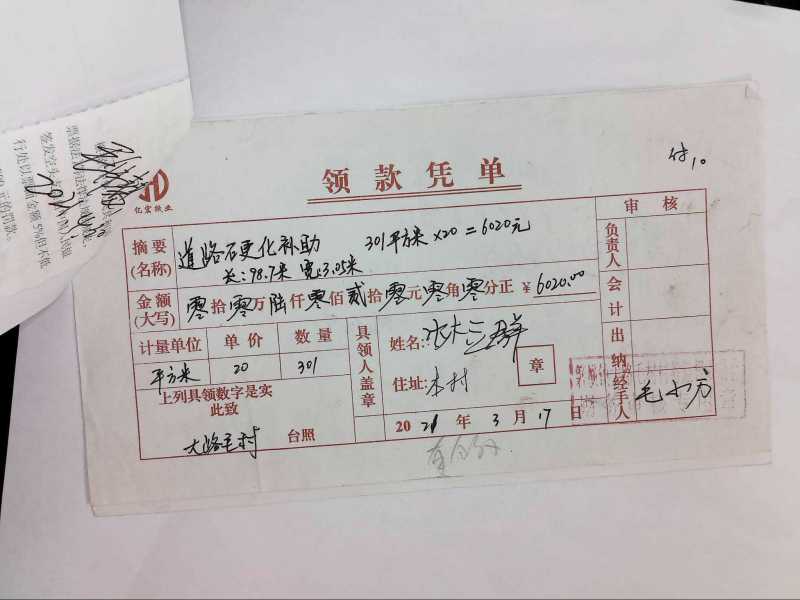 票据法
签发空头
行处以票面金额5%但不低
的罚款。
付1。
领款凭单
亿宏账业
摘要(名称) 道路硬化补助 301平方米×20=6020元
长:98.7米 宽:3.05米
审核
负责人
金额(大写) 零拾零万陆仟零佰贰拾零元零角零分正 ¥6020.00
会计
计量单位 单价 数量
平方米 20 301
具领人盖章
姓名:
住址:本村
章
出纳
上列具领数字是实
此致
大路毛村 台照
2021年3月17日
经手人